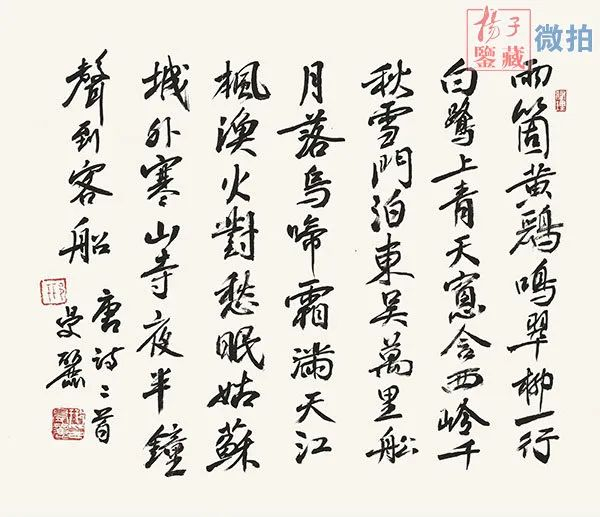 揚子
鑒藏
微拍
兩箇黄鸝鳴翠柳一行
白鷺上青天窓含西嶺千
秋雪門泊東吴萬里船
月落烏啼霜滿天江
楓漁火對愁眠姑蘇
城外寒山寺夜半鐘
聲到客船
唐詩二首